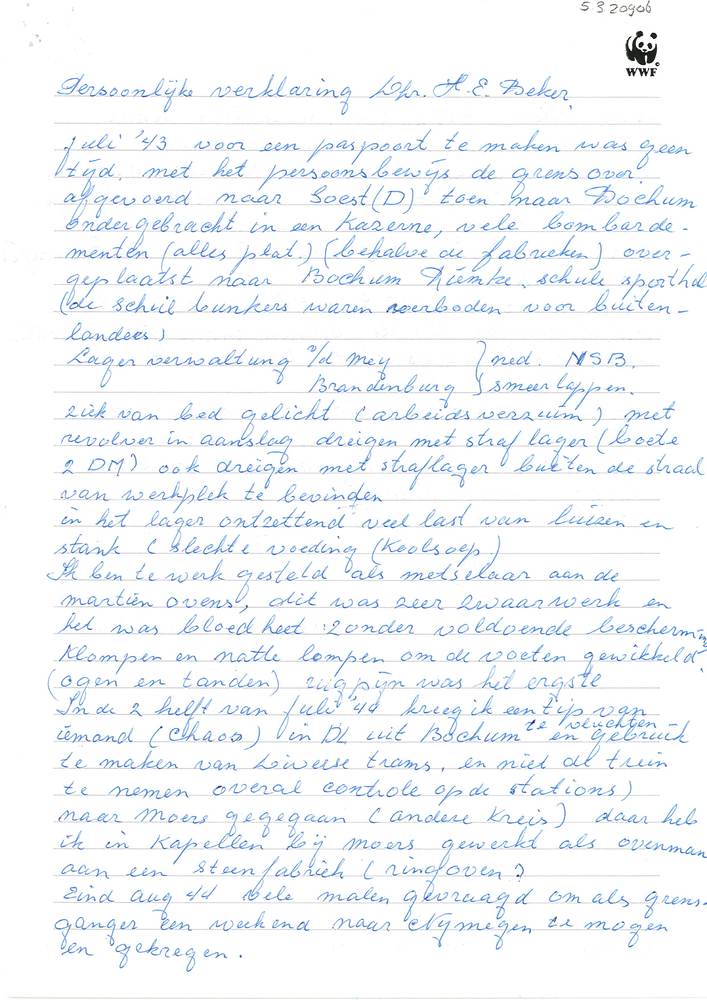 5 3 20906
WWF
Persoonlijke verklaring Dhr. H. E. Beker.
Juli '43 voor een paspoort te maken was geen
tijd. met het persoonsbewijs de grens over.
afgevoerd naar Soest (D) toen naar Bochum
ondergebracht in een Kazerne, vele bombarde-
menten (alles plat.) (behalve de fabrieken) over-
geplaatst naar Bochum Riemke. schule sporthal
(de schuil bunkers waren verboden voor buiten-
landers)
Lager verwaltung v/d Mey } ned. NSB.
Brandenburg } smeerlappen.
ziek van bed gelicht (arbeidsverzuim) met
revolver in aanslag dreigen met straf lager (boete
2 DM) ook dreigen met straflager buiten de straal
van werkplek te bevinden
in het lager ontzettend veel last van luizen en
stank (slechte voeding (Koolsoep)
Ik ben te werk gesteld als metselaar aan de
martien ovens, dit was zeer zwaar werk en
het was bloedheet zonder voldoende bescherming
Klompen en natte lompen om de voeten gewikkeld.
(ogen en tanden) rugpijn was het ergste
In de 2 helft van Juli '44 kreeg ik een tip van
iemand (Chaos) in DL uit Bochum te vluchten en gebruik
te maken van diverse trams. en niet de trein
te nemen overal controle op de stations)
naar Moers gegegaan (andere Kreis) daar heb
ik in Kapellen bij Moers gewerkt als ovenman
aan een steenfabriek (ringoven)
Eind aug 44 vele malen gevraagd om als grens-
ganger een weekend naar Nymegen te mogen
en gekregen.